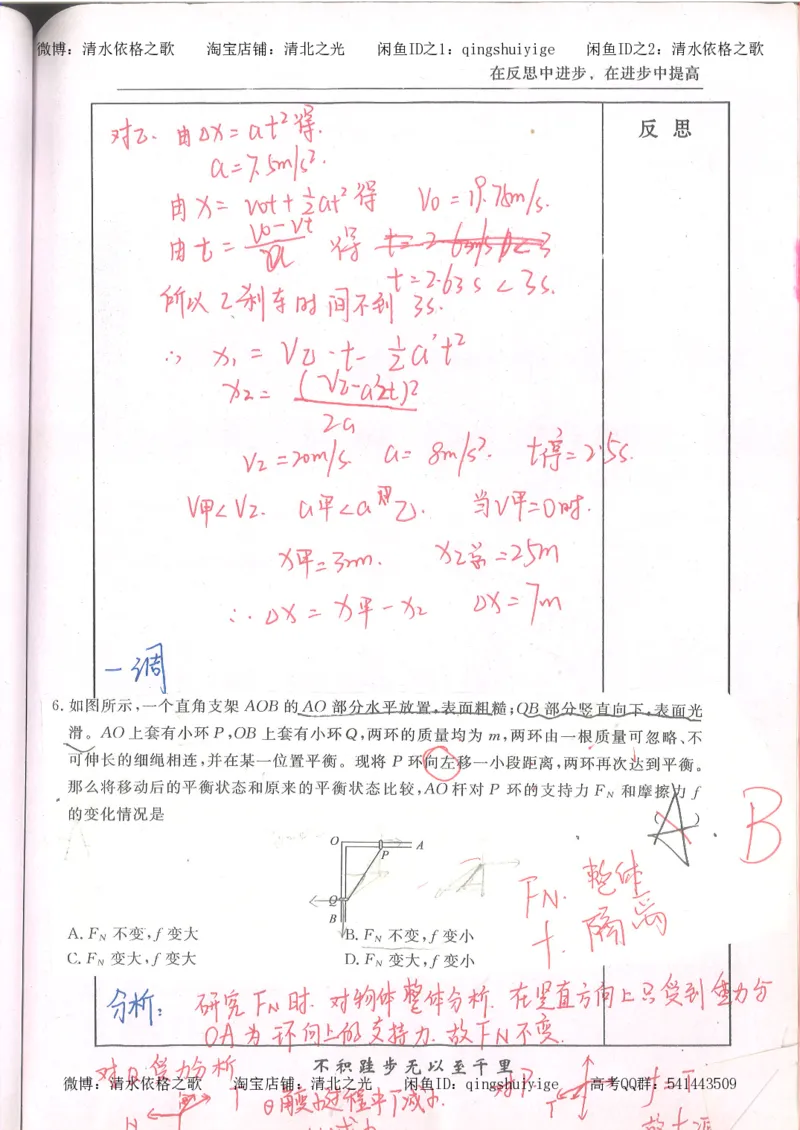 微博：清水依格之歌 淘宝店铺：清北之光 闲鱼ID之1：qingshuiyige 闲鱼ID之2：清水依格之歌
在反思中进步，在进步中提高
反思
对乙．由Δx=at²得．
a=7.5m/s².
由x=v0t+½at²得 v0=19.75m/s.
由t=(v0-vt)/a 得
t=2.63s<3s.
所以乙刹车时间不到3s.
∴ x₁=v乙·t-½a't²
x₂=(v乙-a乙t)²/2a
v乙=20m/s. a=8m/s². t停=2.5s.
v甲<v乙. a甲<a乙. 当v甲=0时.
x甲=3m. =25m
∴Δx=x甲-x₂ Δx=7m
一调
6. 如图所示，一个直角支架 AOB 的 AO 部分水平放置，表面粗糙；OB 部分竖直向下，表面光
滑。AO 上套有小环 P，OB 上套有小环 Q，两环的质量均为 m，两环由一根质量可忽略、不
可伸长的细绳相连，并在某一位置平衡。现将 P 环向左移一小段距离，两环再次达到平衡。
那么将移动后的平衡状态和原来的平衡状态比较，AO 杆对 P 环的支持力 FN 和摩擦力 f
的变化情况是 ( A ). B
O A
P
Q
B
FN. 整体
f. 隔离
A. FN 不变，f 变大 B. FN 不变，f 变小
C. FN 变大，f 变大 D. FN 变大，f 变小
分析：研究FN时．对物体整体分析．在竖直方向上只受到重力分
OA为环向上的支持力．故FN不变．
不积跬步无以至千里
对Q受力分析
微博：清水依格之歌 淘宝店铺：清北之光 闲鱼ID：qingshuiyige 高考QQ群：541443509
T θ角变小过程中T减小． 对P T f=T
N